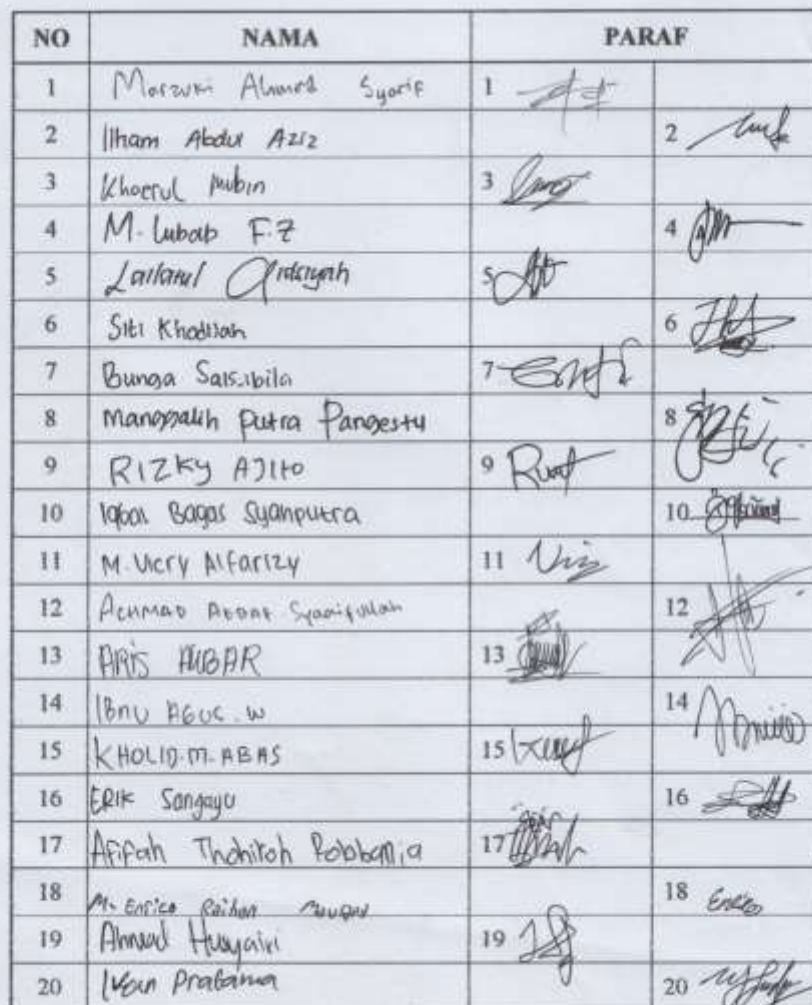 NO NAMA PARAF
1 Marzuki Ahmad Syarif 1
2 Ilham Abdul Aziz 2
3 Khoerul Mubin 3
4 M. Lubab F.Z 4
5 Lailatul Qidsiyah 5
6 Siti Khodijah 6
7 Bunga Salsabila 7
8 Manggalih Putra Pangestu 8
9 RIZKY AJITO 9
10 Iqbal Bagas Syahputra 10
11 M. Vicry Alfarizy 11
12 ACHMAD Syaaifullah 12
13 ARIS AKBAR 13
14 IBNU AGUS. W 14
15 KHOLID. M. ABAS 15
16 ERIK Sangayu 16
17 Afifah Thohiroh Robbania 17
18 M. Enrico Raihan 18 Enrico
19 Ahmad Husyairi 19
20 Pratama 20